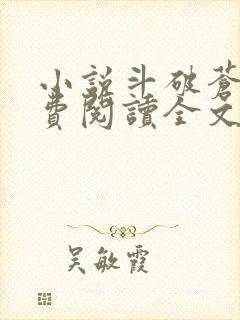 小說斗破蒼
費閱讀全文
吴敏霞